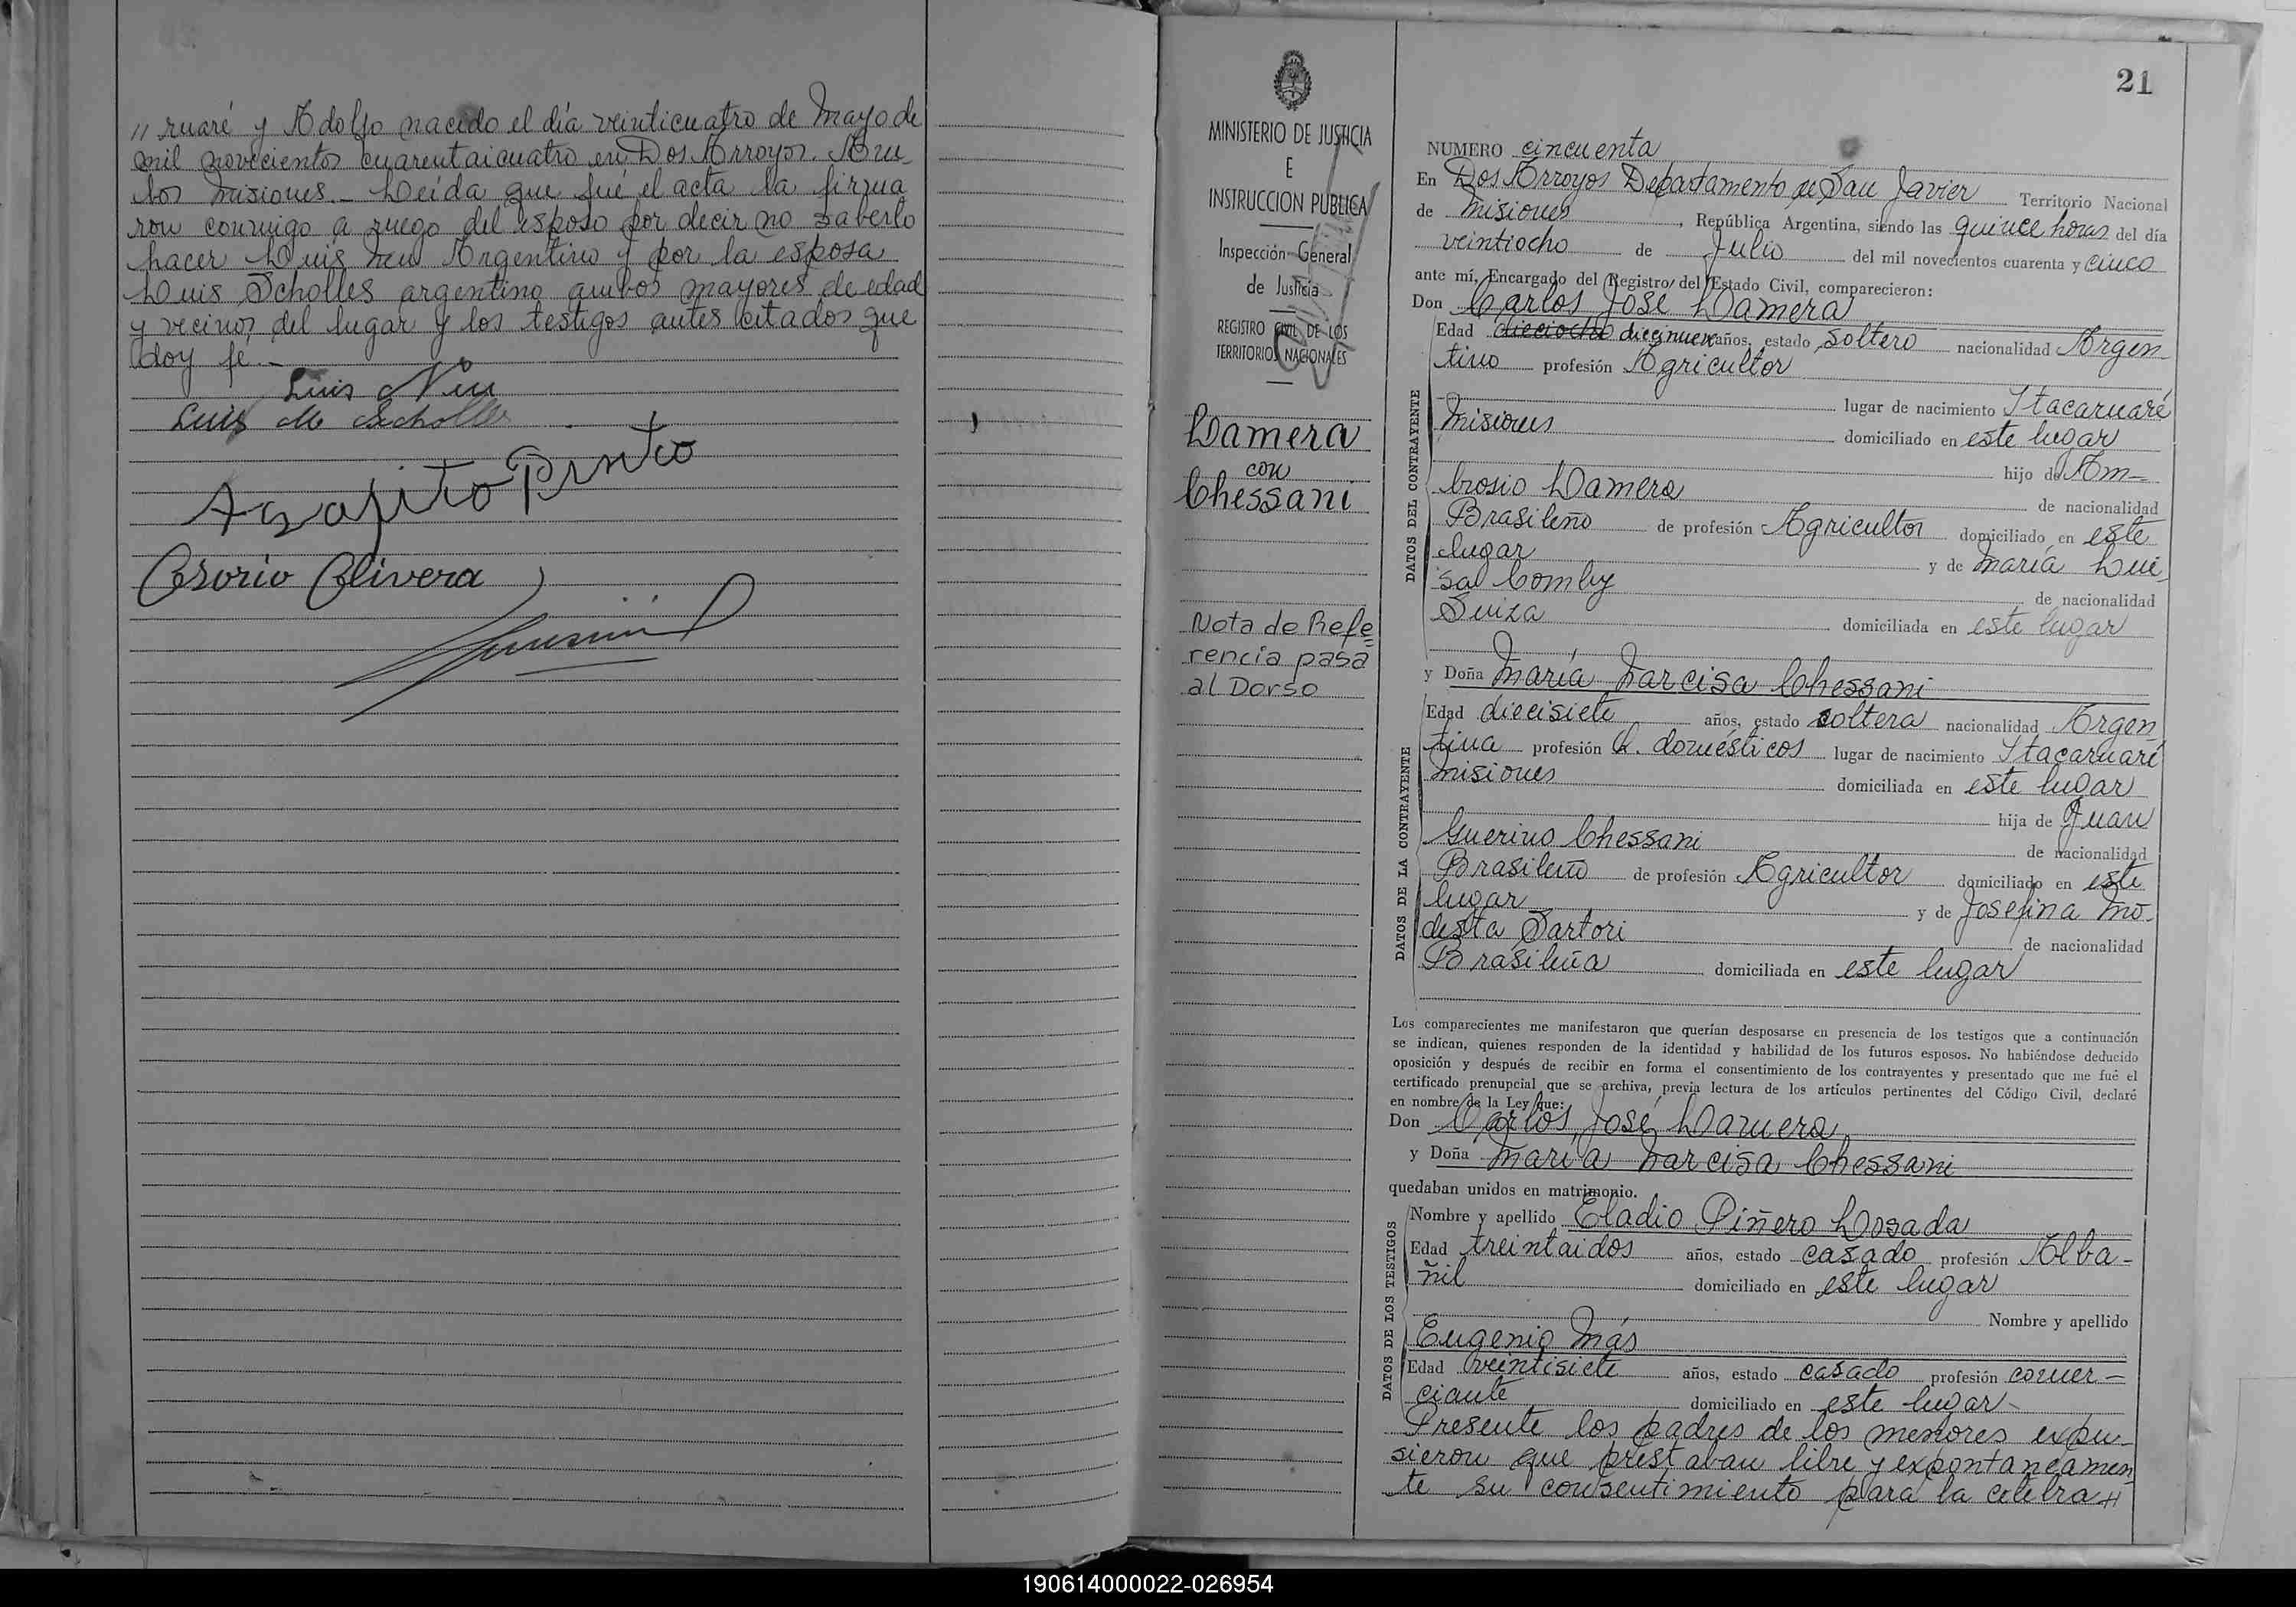 // ruaré y Adolfo nacido el día veinticuatro de Mayo de
mil novecientos cuarentaicuatro en Dos Arroyos. Am
bos Misiones.- Leída que fué el acta la firma
ron conmigo a ruego del esposo por decir no saberlo
hacer Luis Neu Argentino y por la esposa
Luis Scholles argentino ambos mayores de edad
y vecinos del lugar y los testigos antes citados que
doy fe.-
Luis Neu
Luis M Scholles
Agapito Pinto
Osorio Olivera
MINISTERIO DE JUSTICIA
E
INSTRUCCION PUBLICA
Inspección General
de Justicia
REGISTRO CIVIL DE LOS
TERRITORIOS NACIONALES
Lamera
con
Chessani
Nota de Refe
rencia pasa
al Dorso
21
NUMERO cincuenta
En Dos Arroyos Departamento de San Javier Territorio Nacional
de Misiones, República Argentina, siendo las quince horas del día
veintiocho de Julio del mil novecientos cuarenta y cinco
ante mí, Encargado del Registro del Estado Civil, comparecieron:
Don Carlos José Lamera
DATOS DEL CONTRAYENTE
Edad dieciocho diecinueve años, estado soltero nacionalidad Argen
tino profesión Agricultor
lugar de nacimiento Itacaruaré
Misiones domiciliado en este lugar
hijo de Am-
brosio Lamera de nacionalidad
Brasileño de profesión Agricultor domiciliado en este
lugar y de María Lui
sa Comby de nacionalidad
Suiza domiciliada en este lugar
y Doña María Narcisa Chessani
DATOS DE LA CONTRAYENTE
Edad diecisiete años, estado soltera nacionalidad Argen
tina profesión Q. domésticos lugar de nacimiento Itacaruaré
Misiones domiciliada en este lugar
hija de Juan
Guerino Chessani de nacionalidad
Brasileño de profesión Agricultor domiciliado en este
lugar y de Josefina Mo-
desta Sartori de nacionalidad
Brasileña domiciliada en este lugar
Los comparecientes me manifestaron que querían desposarse en presencia de los testigos que a continuación
se indican, quienes responden de la identidad y habilidad de los futuros esposos. No habiéndose deducido
oposición y después de recibir en forma el consentimiento de los contrayentes y presentado que me fué el
certificado prenupcial que se archiva, previa lectura de los artículos pertinentes del Código Civil, declaré
en nombre de la Ley que:
Don Carlos José Lamera
y Doña María Narcisa Chessani
quedaban unidos en matrimonio.
DATOS DE LOS TESTIGOS
Nombre y apellido Eladio Piñero Losada
Edad treintaidos años, estado casado profesión Alba-
ñil domiciliado en este lugar
Nombre y apellido
Eugenio Más
Edad veintisiete años, estado casado profesión comer-
ciante domiciliado en este lugar-
Presente los padres de los menores expu-
sieron que prestaban libre y expontaneamen
te su consentimiento para la celebra //
190614000022-026954